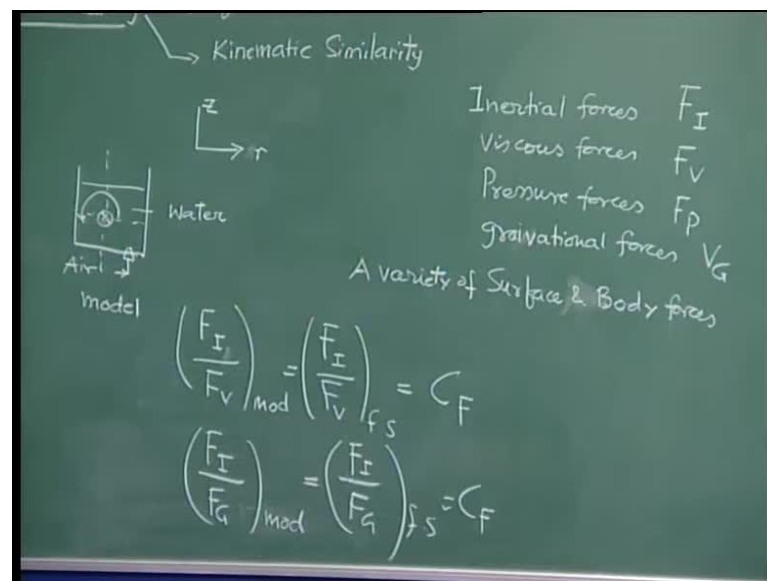 Kinematic Similarity
z
r
Water
Air
model
Inertial forces F_I
Viscous forces F_V
Pressure forces F_P
graivational forces V_G
A variety of Surface & Body forces
(F_I/F_V)_mod = (F_I/F_V)_fs = C_F
(F_I/F_G)_mod = (F_I/F_G)_fs = C_F